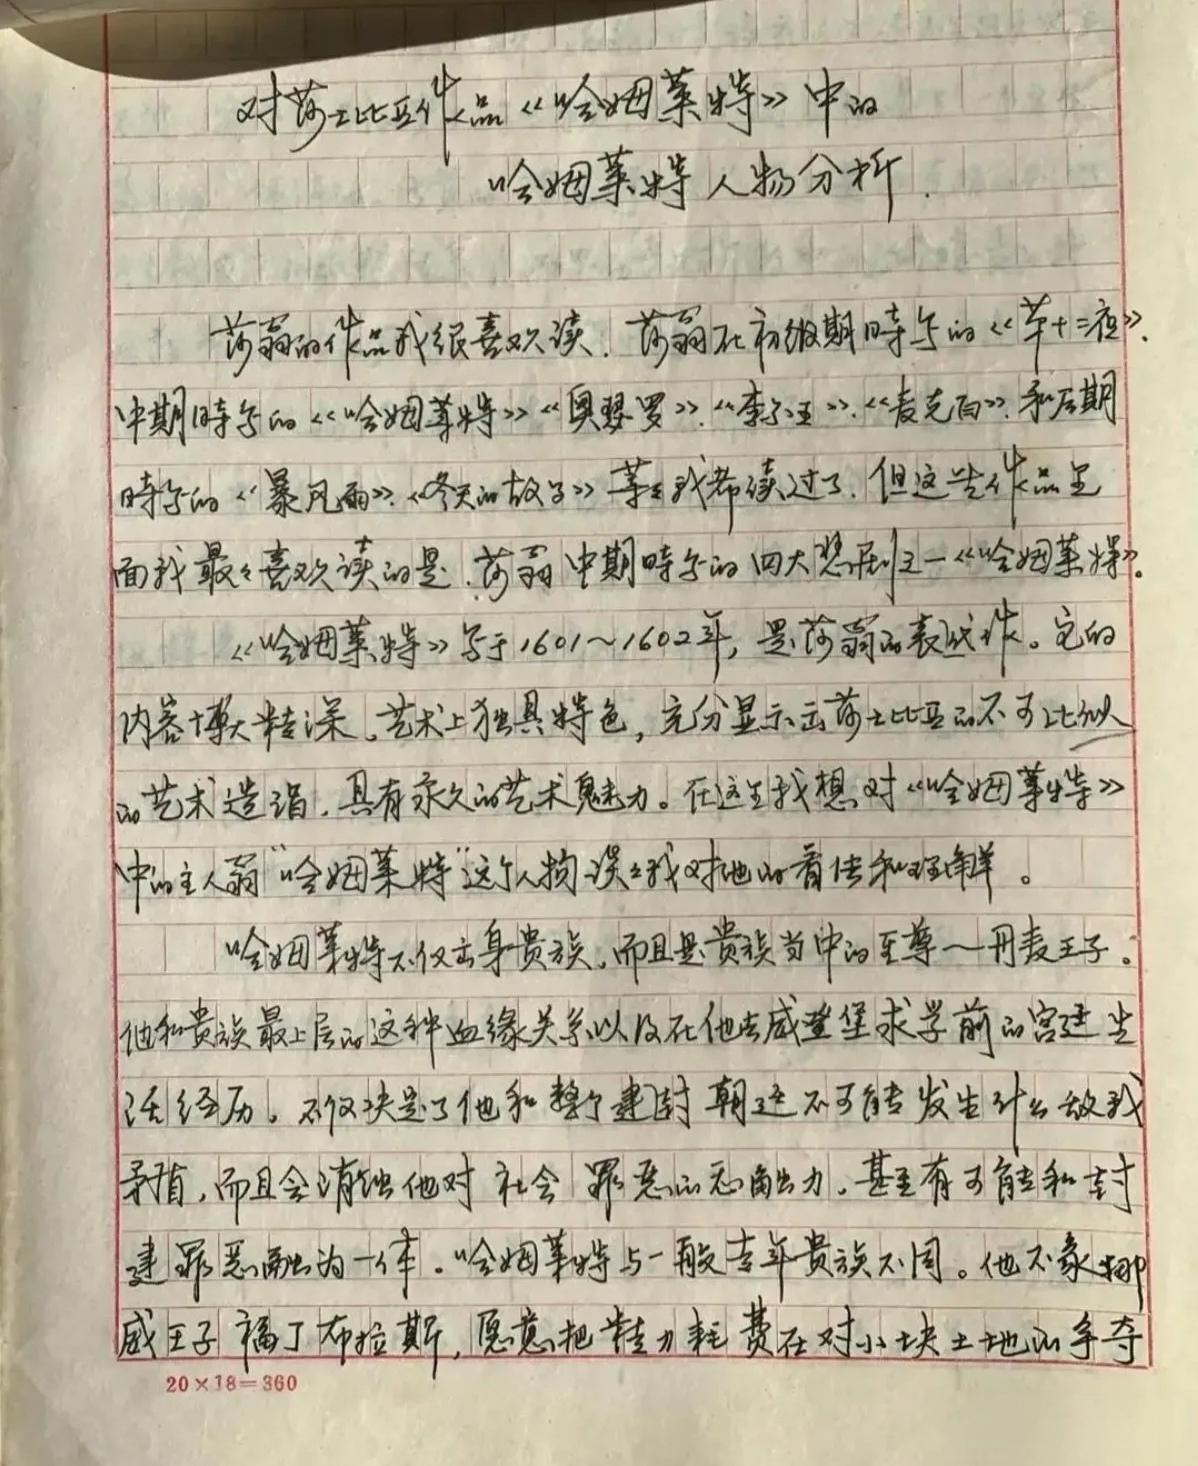 对莎士比亚作品《哈姆莱特》中的
哈姆莱特人物分析.
莎翁的作品我很喜欢读.莎翁在初级期時写的《第十二夜》.
中期時写的《哈姆莱特》《奥瑟罗》.《李尔王》.《麦克白》.和后期
時写的《暴风雨》.《冬天的故事》等我都读过了.但这些作品里
面我最最喜欢读的是.莎翁中期時写的四大悲剧之一《哈姆莱特》。
《哈姆莱特》写于1601～1602年,是莎翁的表代作。它的
内容博大精深.艺术上独具特色,充分显示出莎士比亚的不可比似
的艺术造诣.具有永久的艺术魅力。在这里我想对《哈姆莱特》
中的主人翁"哈姆莱特"这个人物谈谈我对他的看法和理解。
哈姆莱特不仅出身贵族.而且是贵族当中的至尊—丹麦王子。
他和贵族最上层的这种血缘关系以及在他去威登堡求学前的宫廷生
活经历。不仅决定了他和整个建封朝廷不可能发生什么敌我
矛盾,而且会消蚀他对社会罪恶的力.甚至有可能和封
建罪恶融为一体。哈姆莱特与一般青年贵族不同。他不象挪
威王子福丁布拉斯,愿意把精力耗费在对小块土地的争夺
20×18=360